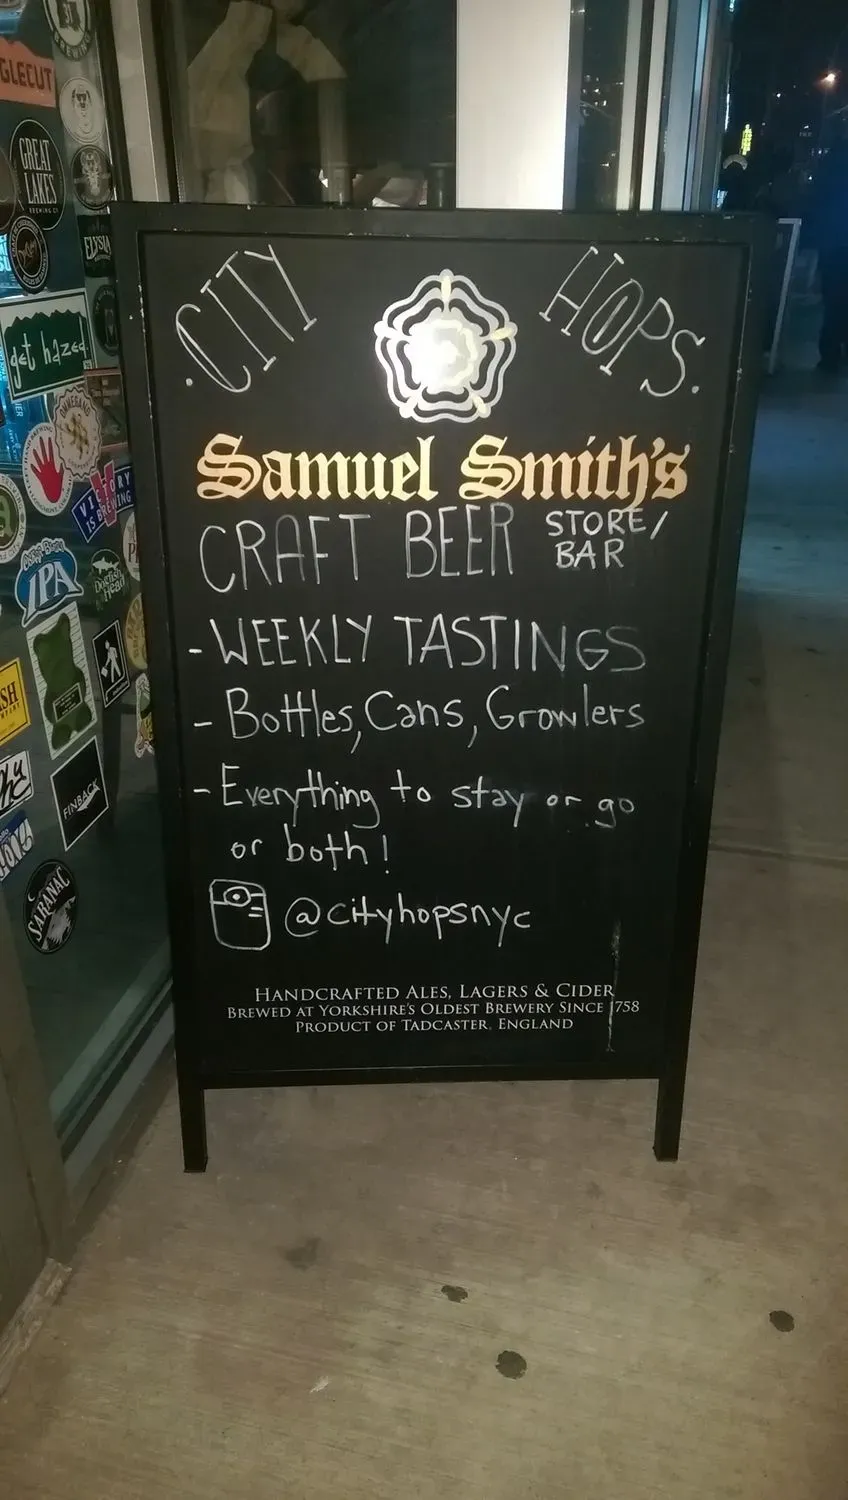 ·CITY HOPS.
Samuel Smith's
CRAFT BEER STORE/
BAR
- WEEKLY TASTINGS
- Bottles, Cans, Growlers
- Everything to stay or go
or both!
@cityhopsnyc
HANDCRAFTED ALES, LAGERS & CIDER
BREWED AT YORKSHIRE'S OLDEST BREWERY SINCE 1758
PRODUCT OF TADCASTER, ENGLAND
GLECUT
GREAT
LAKES
BREWING CO
ELYSIA
get hazed
OMMEGANG
VICTORY
IS BREWING
IPA
Dogfish
Head
SH
FINBACK
SARANAC